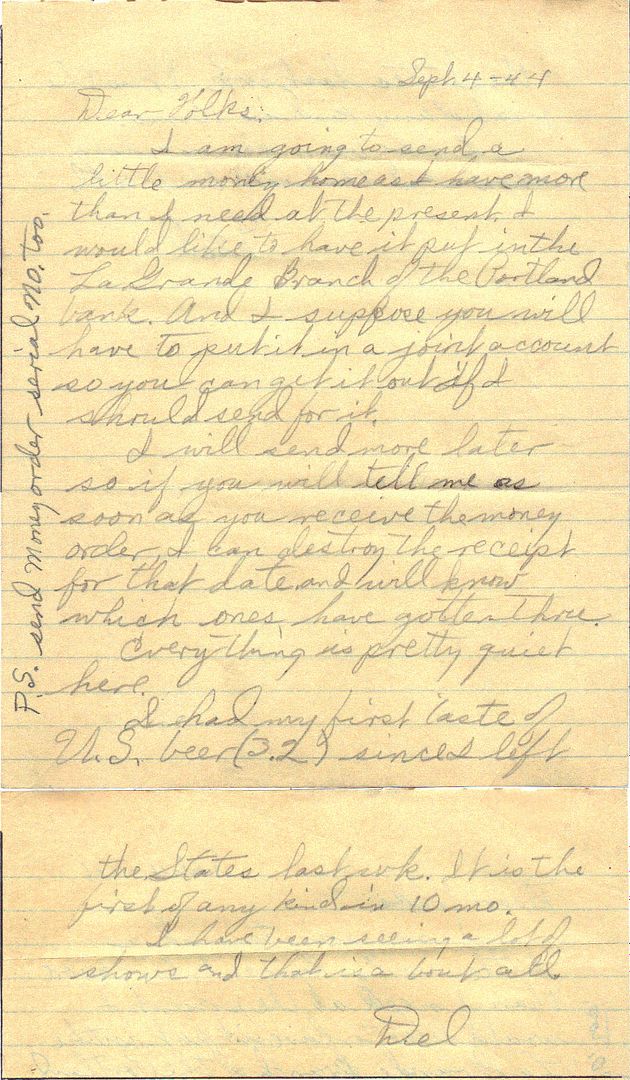 Sept. 4-44
Dear Folks:
I am going to send a
little money home as I have more
than I need at the present. I
would like to have it put in the
La Grande Branch of the Portland
bank. And I suppose you will
have to put it in a joint account
so you can get it out if I
should send for it.
I will send more later
so if you will tell me as
soon as you receive the money
order, I can destroy the receipt
for that date and will know
which ones have gotten thru.
Everything is pretty quiet
here.
I had my first taste of
U.S. beer (3.2) since I left
the States last wk. It is the
first of any kind in 10 mo.
I have been seeing a lot of
shows and that is about all.
Del
P.S. send Money order serial No. too.